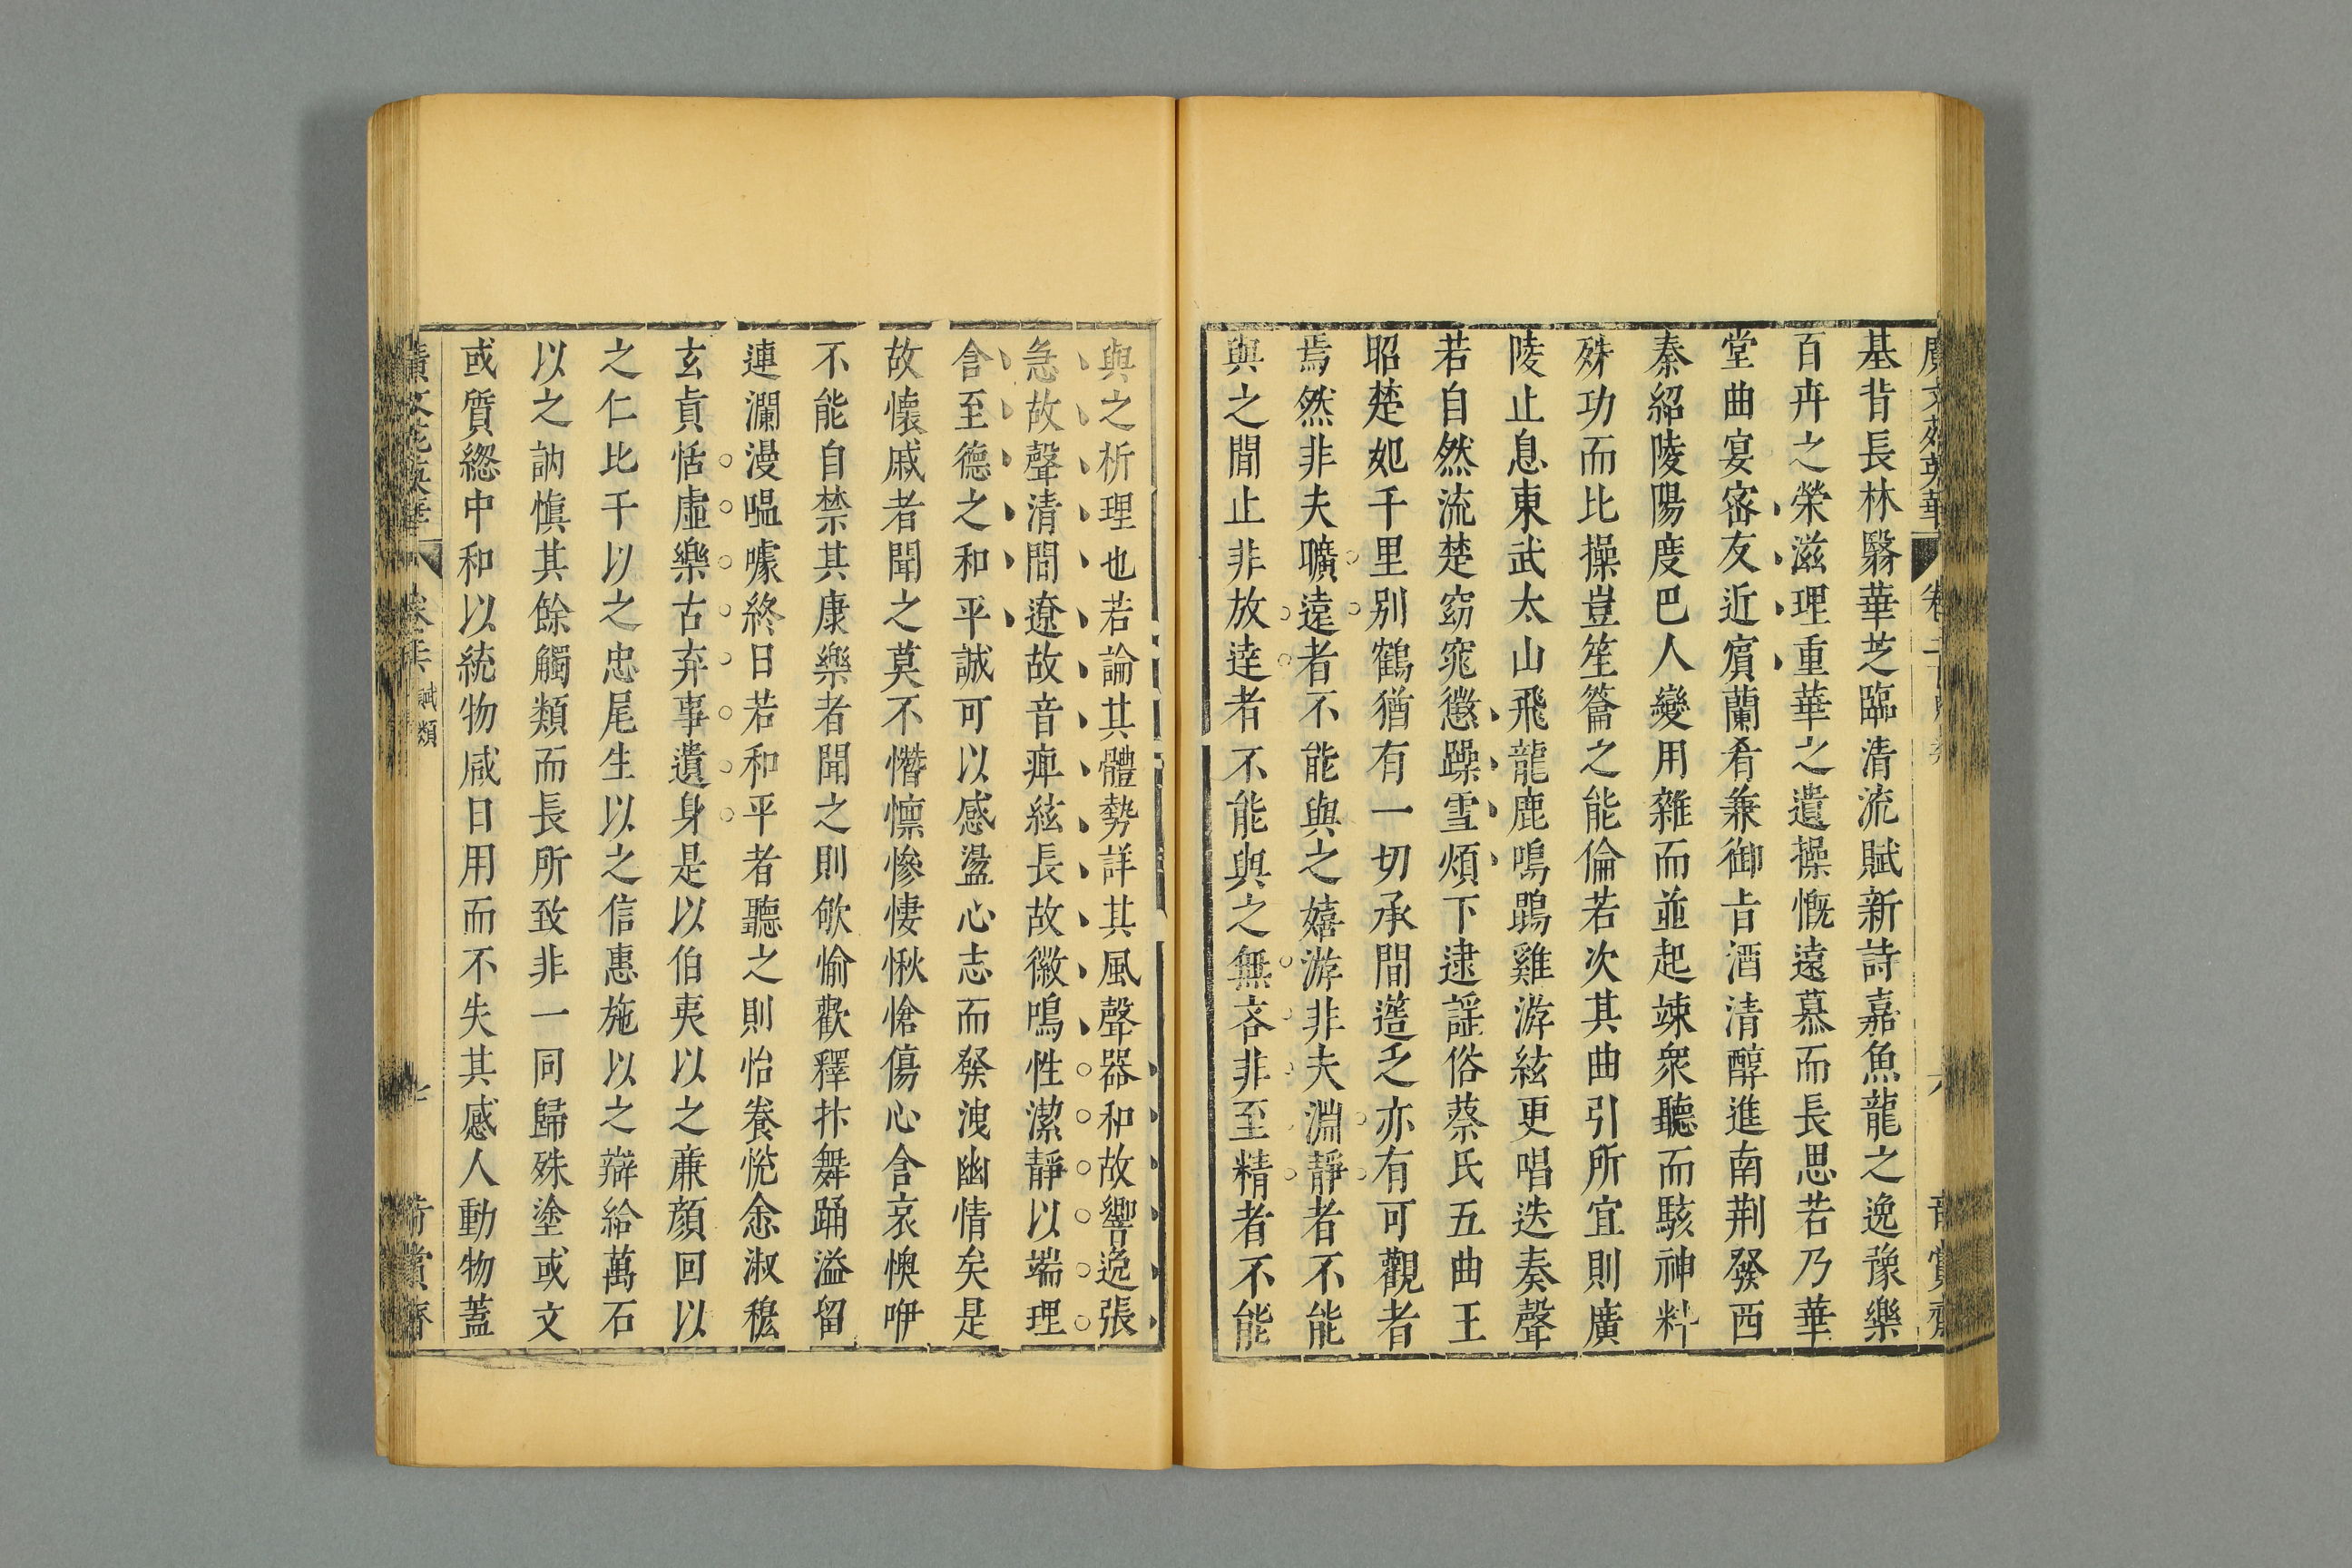 基背長林翳華芝臨清流賦新詩嘉魚龍之逸豫樂
百卉之榮滋理重華之遺操慨遠慕而長思若乃華
堂曲宴密友近賔蘭肴兼御㫖酒清醇進南荆發西
秦紹陵陽度巴人變用雜而並起竦衆聽而駭神料
殊功而比操豈笙籥之能倫若次其曲引所宜則廣
陵止息東武太山飛龍鹿鳴鵾雞游絃更唱迭奏聲
若自然流楚窈窕懲躁雪煩下逮謡俗蔡氏五曲王
昭楚妃千里别鶴猶有一切承間簉乏亦有可觀者
焉然非夫曠遠者不能與之嬉游非夫淵靜者不能
與之閒止非放逹者不能與之無吝非至精者不能
與之析理也若論其體勢詳其風聲器和故響逸張
急故聲清間遼故音痺絃長故徽鳴性潔靜以端理
含至德之和平誠可以感盪心志而發洩幽情矣是
故懷戚者聞之莫不憯懍慘悽愀愴傷心含哀懊咿
不能自禁其康樂者聞之則欨愉歡釋抃舞踊溢留
連瀾漫嗢噱終日若和平者聽之則怡養悅悆淑穆
玄貞恬虛樂古弃事遺身是以伯夷以之亷顔回以
之仁比干以之忠尾生以之信惠施以之辯給萬石
以之訥慎其餘觸類而長所致非一同歸殊塗或文
或質緫中和以統物咸日用而不失其感人動物蓋
賦類